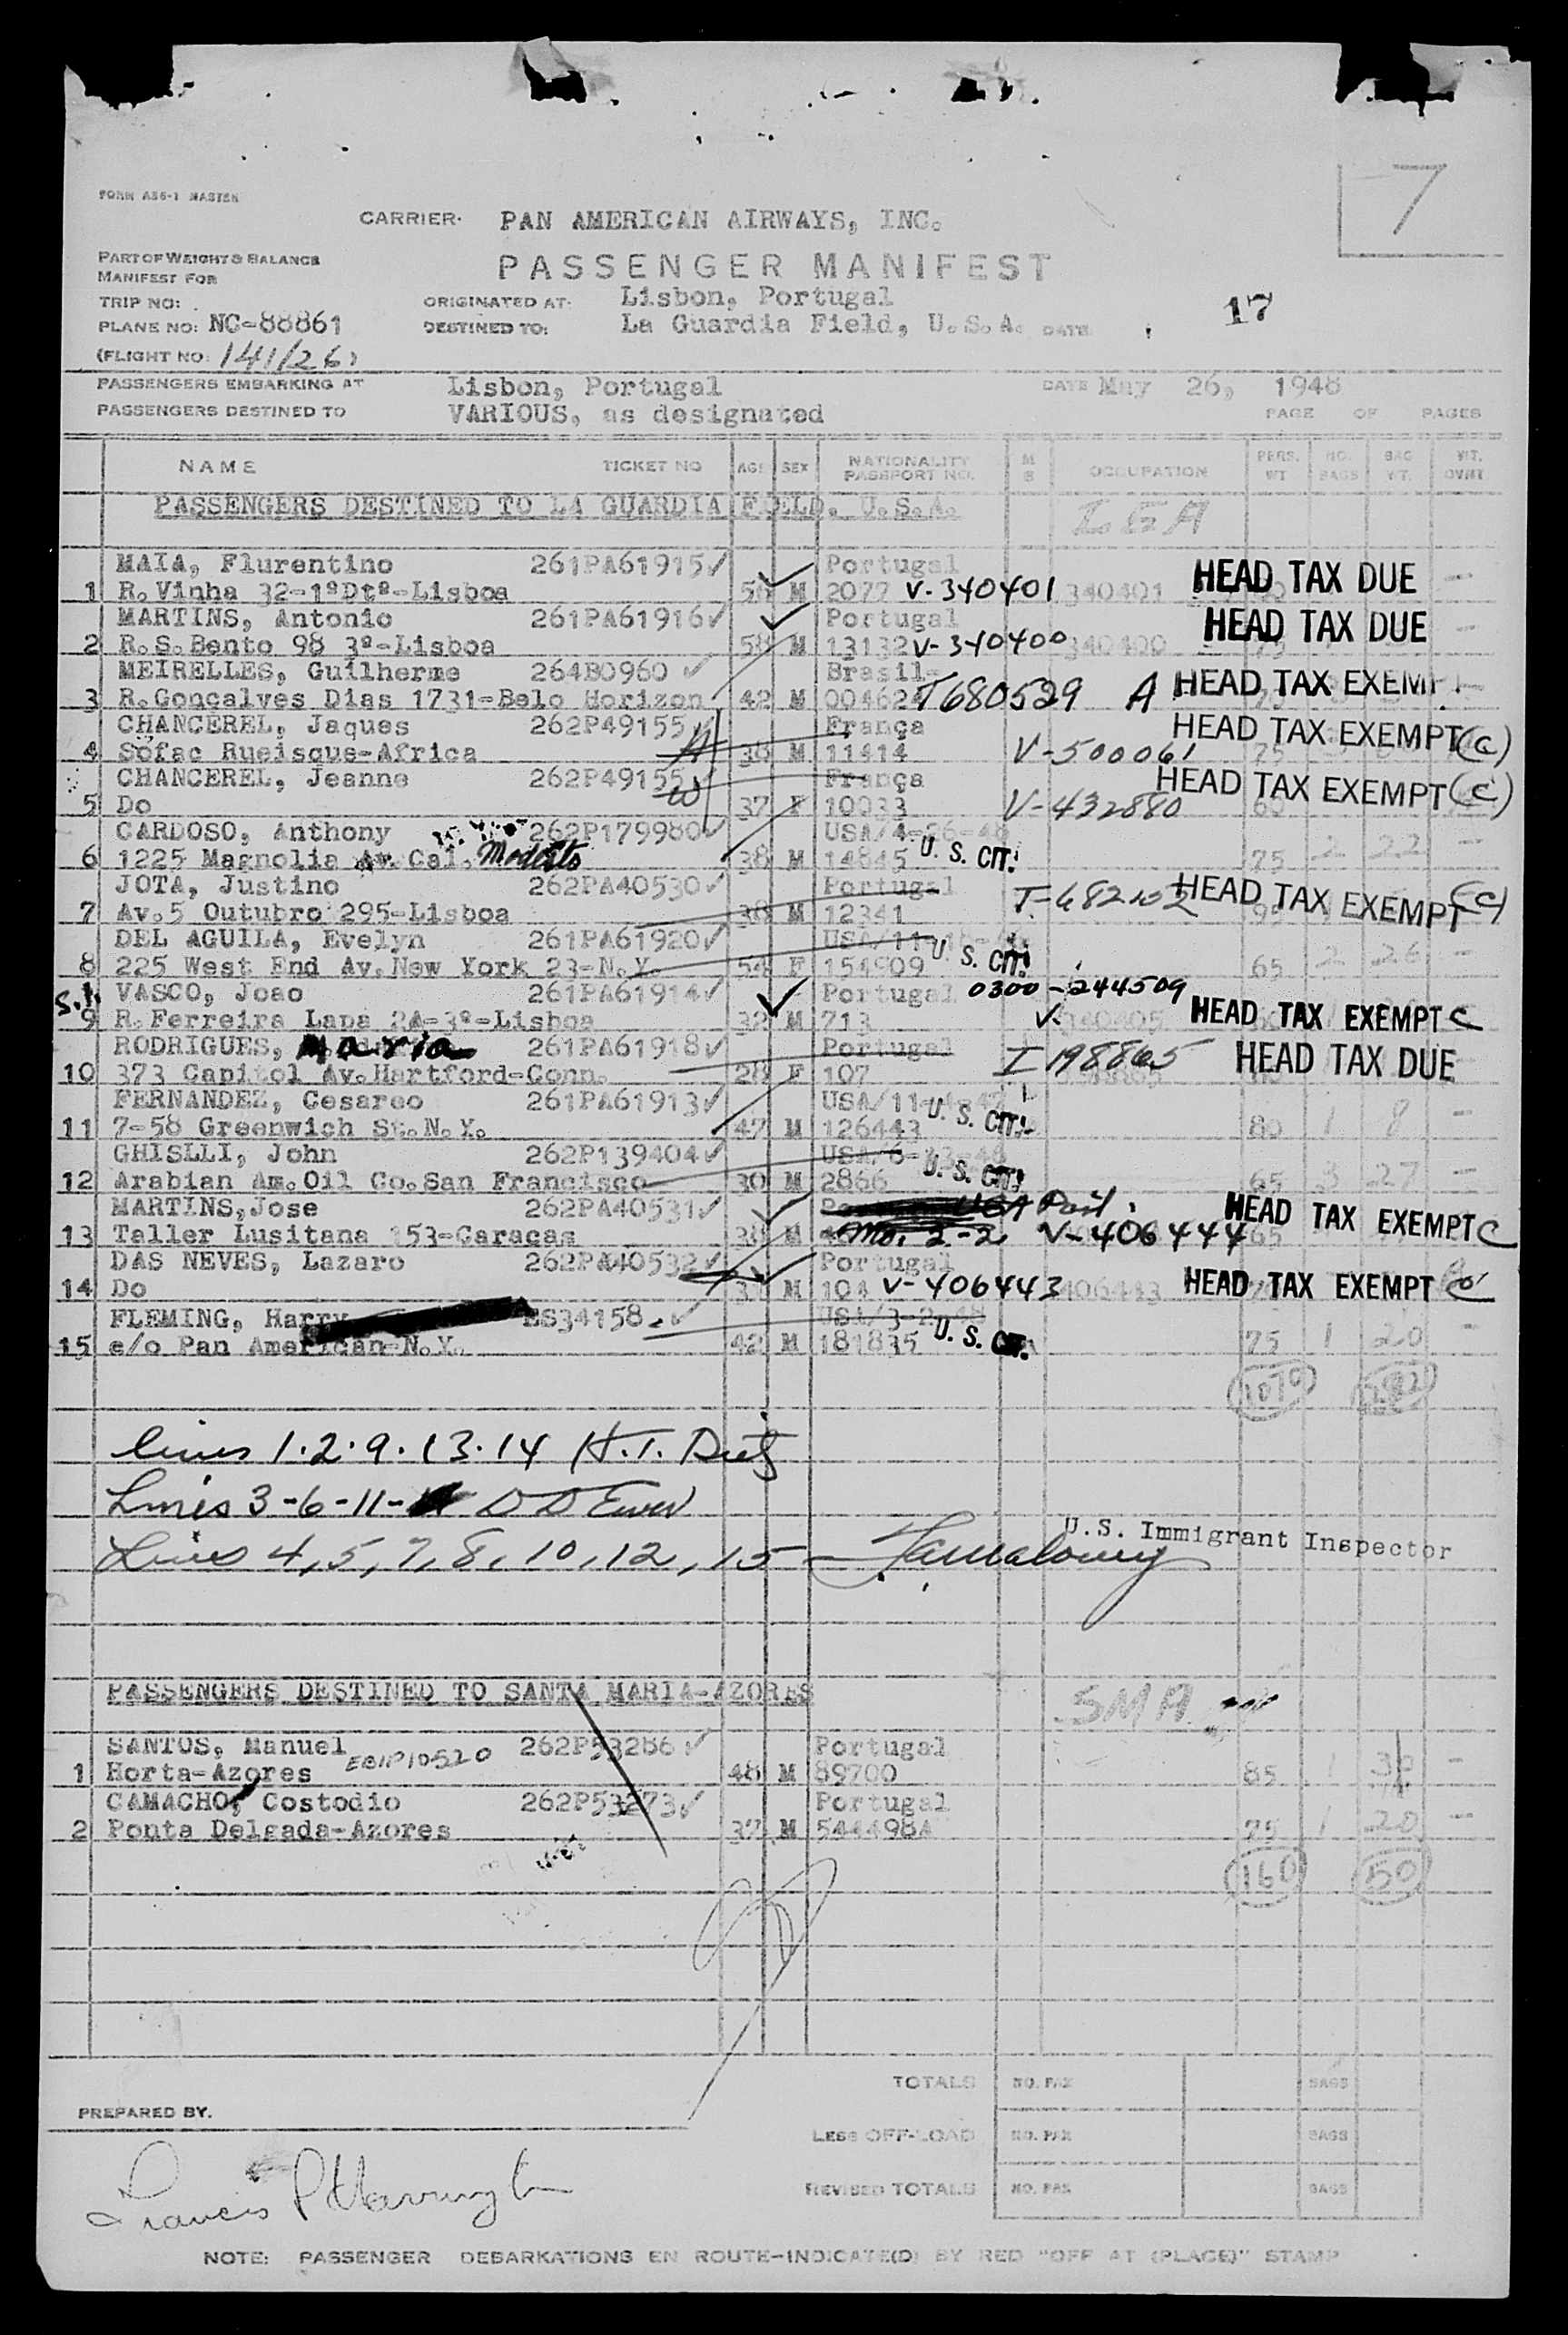 7
FORM A36-1 MASTER
CARRIER. PAN AMERICAN AIRWAYS, INC.
PART OF WEIGHT & BALANCE
MANIFEST FOR
PASSENGER MANIFEST
TRIP NO: ORIGINATED AT. Lisbon, Portugal 17
PLANE NO: NC-88861 DESTINED TO: La Guardia Field, U.S.A. DATE
(FLIGHT NO: 141/26)
PASSENGERS EMBARKING AT Lisbon, Portugal DATE May 26, 1948
PASSENGERS DESTINED TO VARIOUS, as designated PAGE OF PAGES
NAME TICKET NO AGE SEX NATIONALITY PASSPORT NO. M S OCCUPATION PERS. WT NO. BAGS BAG WT. WT. OVWT
PASSENGERS DESTINED TO LA GUARDIA FIELD, U.S.A. LGA
MAIA, Flurentino 261PA61915 Portugal
1 R.Vinha 32-1ºDtº-Lisboa M 2077 V-340401 340401 HEAD TAX DUE
MARTINS, Antonio 261PA61916 Portugal
2 R.S.Bento 98 3º-Lisboa 58 M 13132 V-340400 340400 HEAD TAX DUE
MEIRELLES, Guilherme 264B0960 Brasil
3 R.Gonçalves Dias 1731-Belo Horizon 42 M 004624 T680529 A HEAD TAX EXEMPT
CHANCEREL, Jaques 262P49155 França
4 Sofac Rueisque-Africa 38 M 11414 V-500061 75 HEAD TAX EXEMPT (C)
CHANCEREL, Jeanne 262P49155 França
5 Do 37 F 10033 V-432880 HEAD TAX EXEMPT (C)
CARDOSO, Anthony 262P179980 USA/4-26-48
6 1225 Magnolia Av. Cal. Modesto 38 M 14845 U. S. CIT. 75 2 22 -
JOTA, Justino 262PA40530 Portugal
7 Av.5 Outubro 295-Lisboa 38 M 12341 T-682102 95 HEAD TAX EXEMPT (C)
DEL AGUILA, Evelyn 261PA61920
8 225 West End Av.New York 23-N.Y. 54 F 154909 U. S. CIT. 65 2 26 -
S.I. VASCO, Joao 261PA61914 Portugal 0300-244509
9 R.Ferreira Lapa 2A-3º-Lisboa 32 M 713 V- 340405 HEAD TAX EXEMPT C
RODRIGUES, Maria 261PA61918 Portugal
10 373 Capitol Av.Hartford-Conn. 28 F 107 I 198865 HEAD TAX DUE
FERNANDEZ, Cesareo 261PA61913
11 7-58 Greenwich St.N.Y. 47 M 126443 U. S. CIT. 80 1 8 -
GHISLLI, John 262P139404
12 Arabian Am.Oil Co.San Francisco 30 M 2866 U. S. CIT. 65 3 27 -
MARTINS,Jose 262PA40531 Port.
13 Taller Lusitana 153-Caracas 38 M No. 2-2 V-406444 65 HEAD TAX EXEMPT C
DAS NEVES, Lazaro 262PA40532 Portugal
14 Do M 104 V-406443 406443 HEAD TAX EXEMPT C
FLEMING, Harry ES34158 USA/3-2-48
15 c/o Pan American-N.Y. 42 M 181835 U. S. CIT. 75 1 20 -
1070
lines 1.2.9.13.14 H.T. Dietz
Lines 3-6-11- D D Ewer
Lines 4, 5, 7, 8, 10, 12, 15
U.S. Immigrant Inspector
PASSENGERS DESTINED TO SANTA MARIA-AZORES SMA
SANTOS, Manuel 262P53286 Portugal
1 Horta-Azores EBIP10520 48 M 89700 85 1 30 -
CAMACHO, Costodio 262P53273 Portugal
2 Ponta Delgada-Azores 37 M 544498A 75 1 20 -
160 50
TOTALS NO. PAX BAGS
PREPARED BY.
LESS OFF-LOAD NO. PAX BAGS
Francis P Harrington
REVISED TOTALS NO. PAX BAGS
NOTE: PASSENGER DEBARKATIONS EN ROUTE-INDICATE(D) BY RED "OFF AT (PLACE)" STAMP